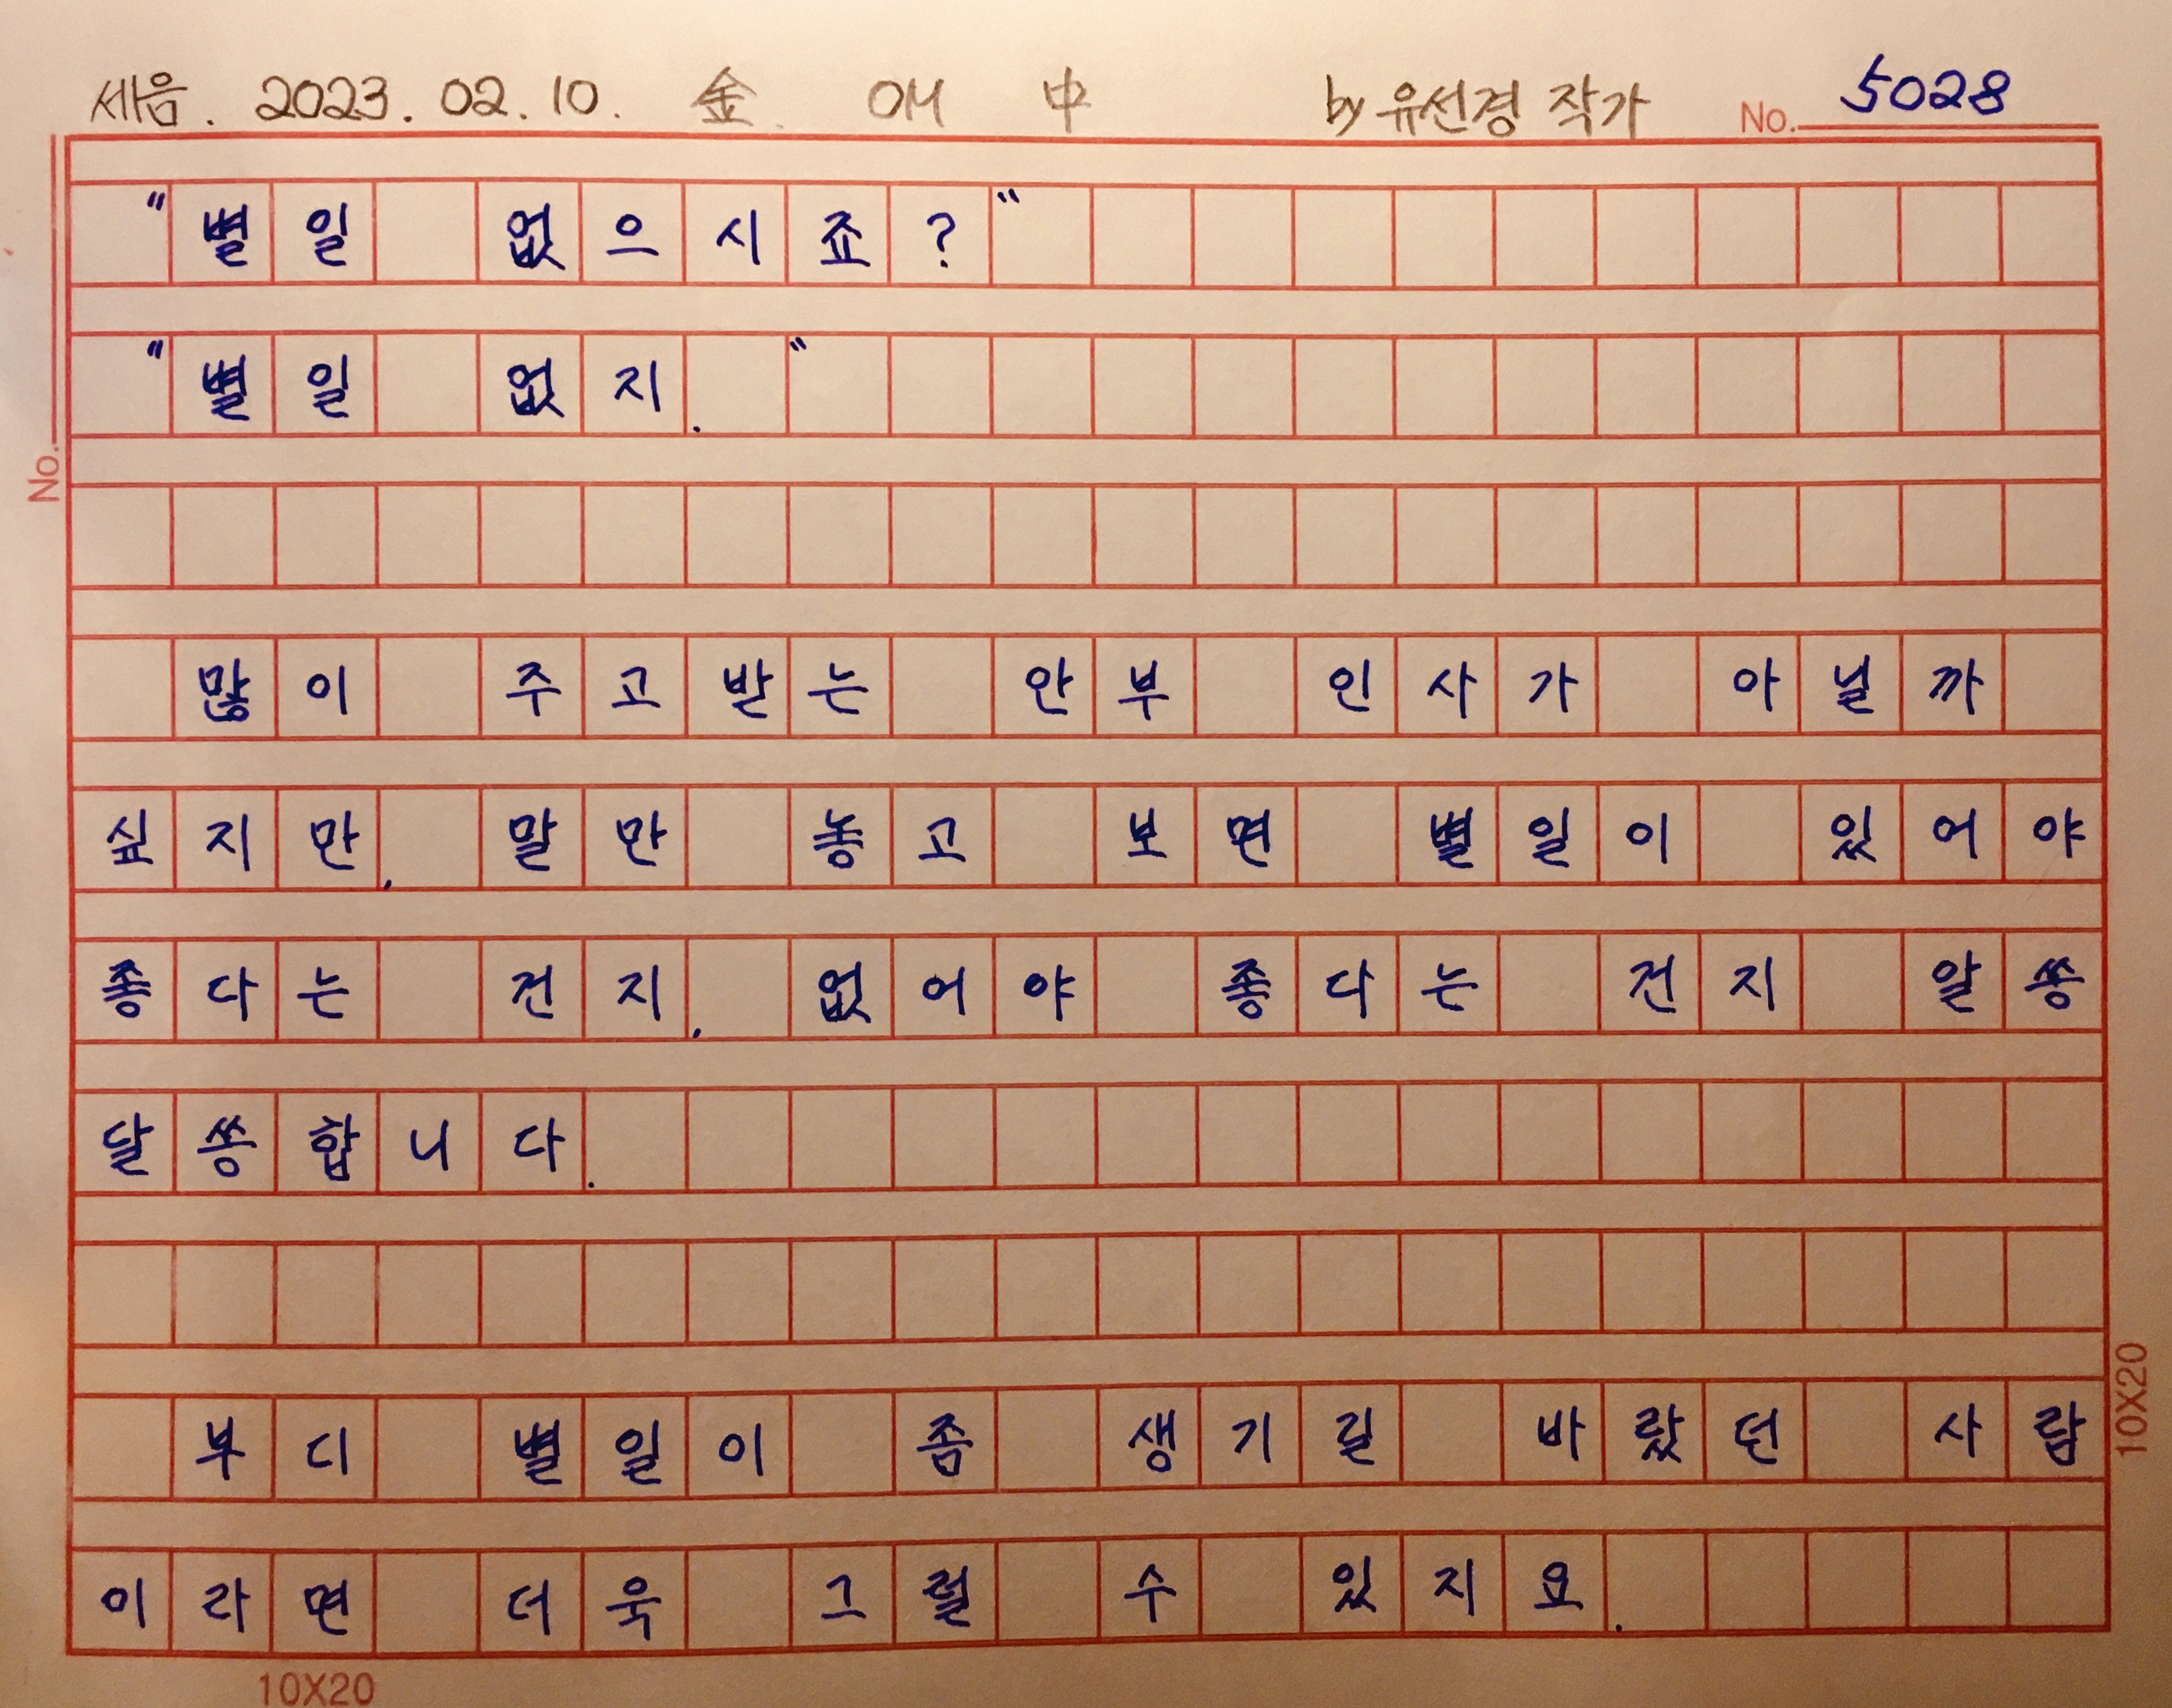 세음. 2023. 02. 10. 金. OM 中 by 유선경 작가 No. 5028
"별일 없으시죠?"
"별일 없지."
No.
많이 주고받는 안부 인사가 아닐까
싶지만, 말만 놓고 보면 별일이 있어야
좋다는 건지, 없어야 좋다는 건지 알쏭
달쏭합니다.
부디 별일이 좀 생기길 바랐던 사람
10X20
이라면 더욱 그럴 수 있지요.
10X20